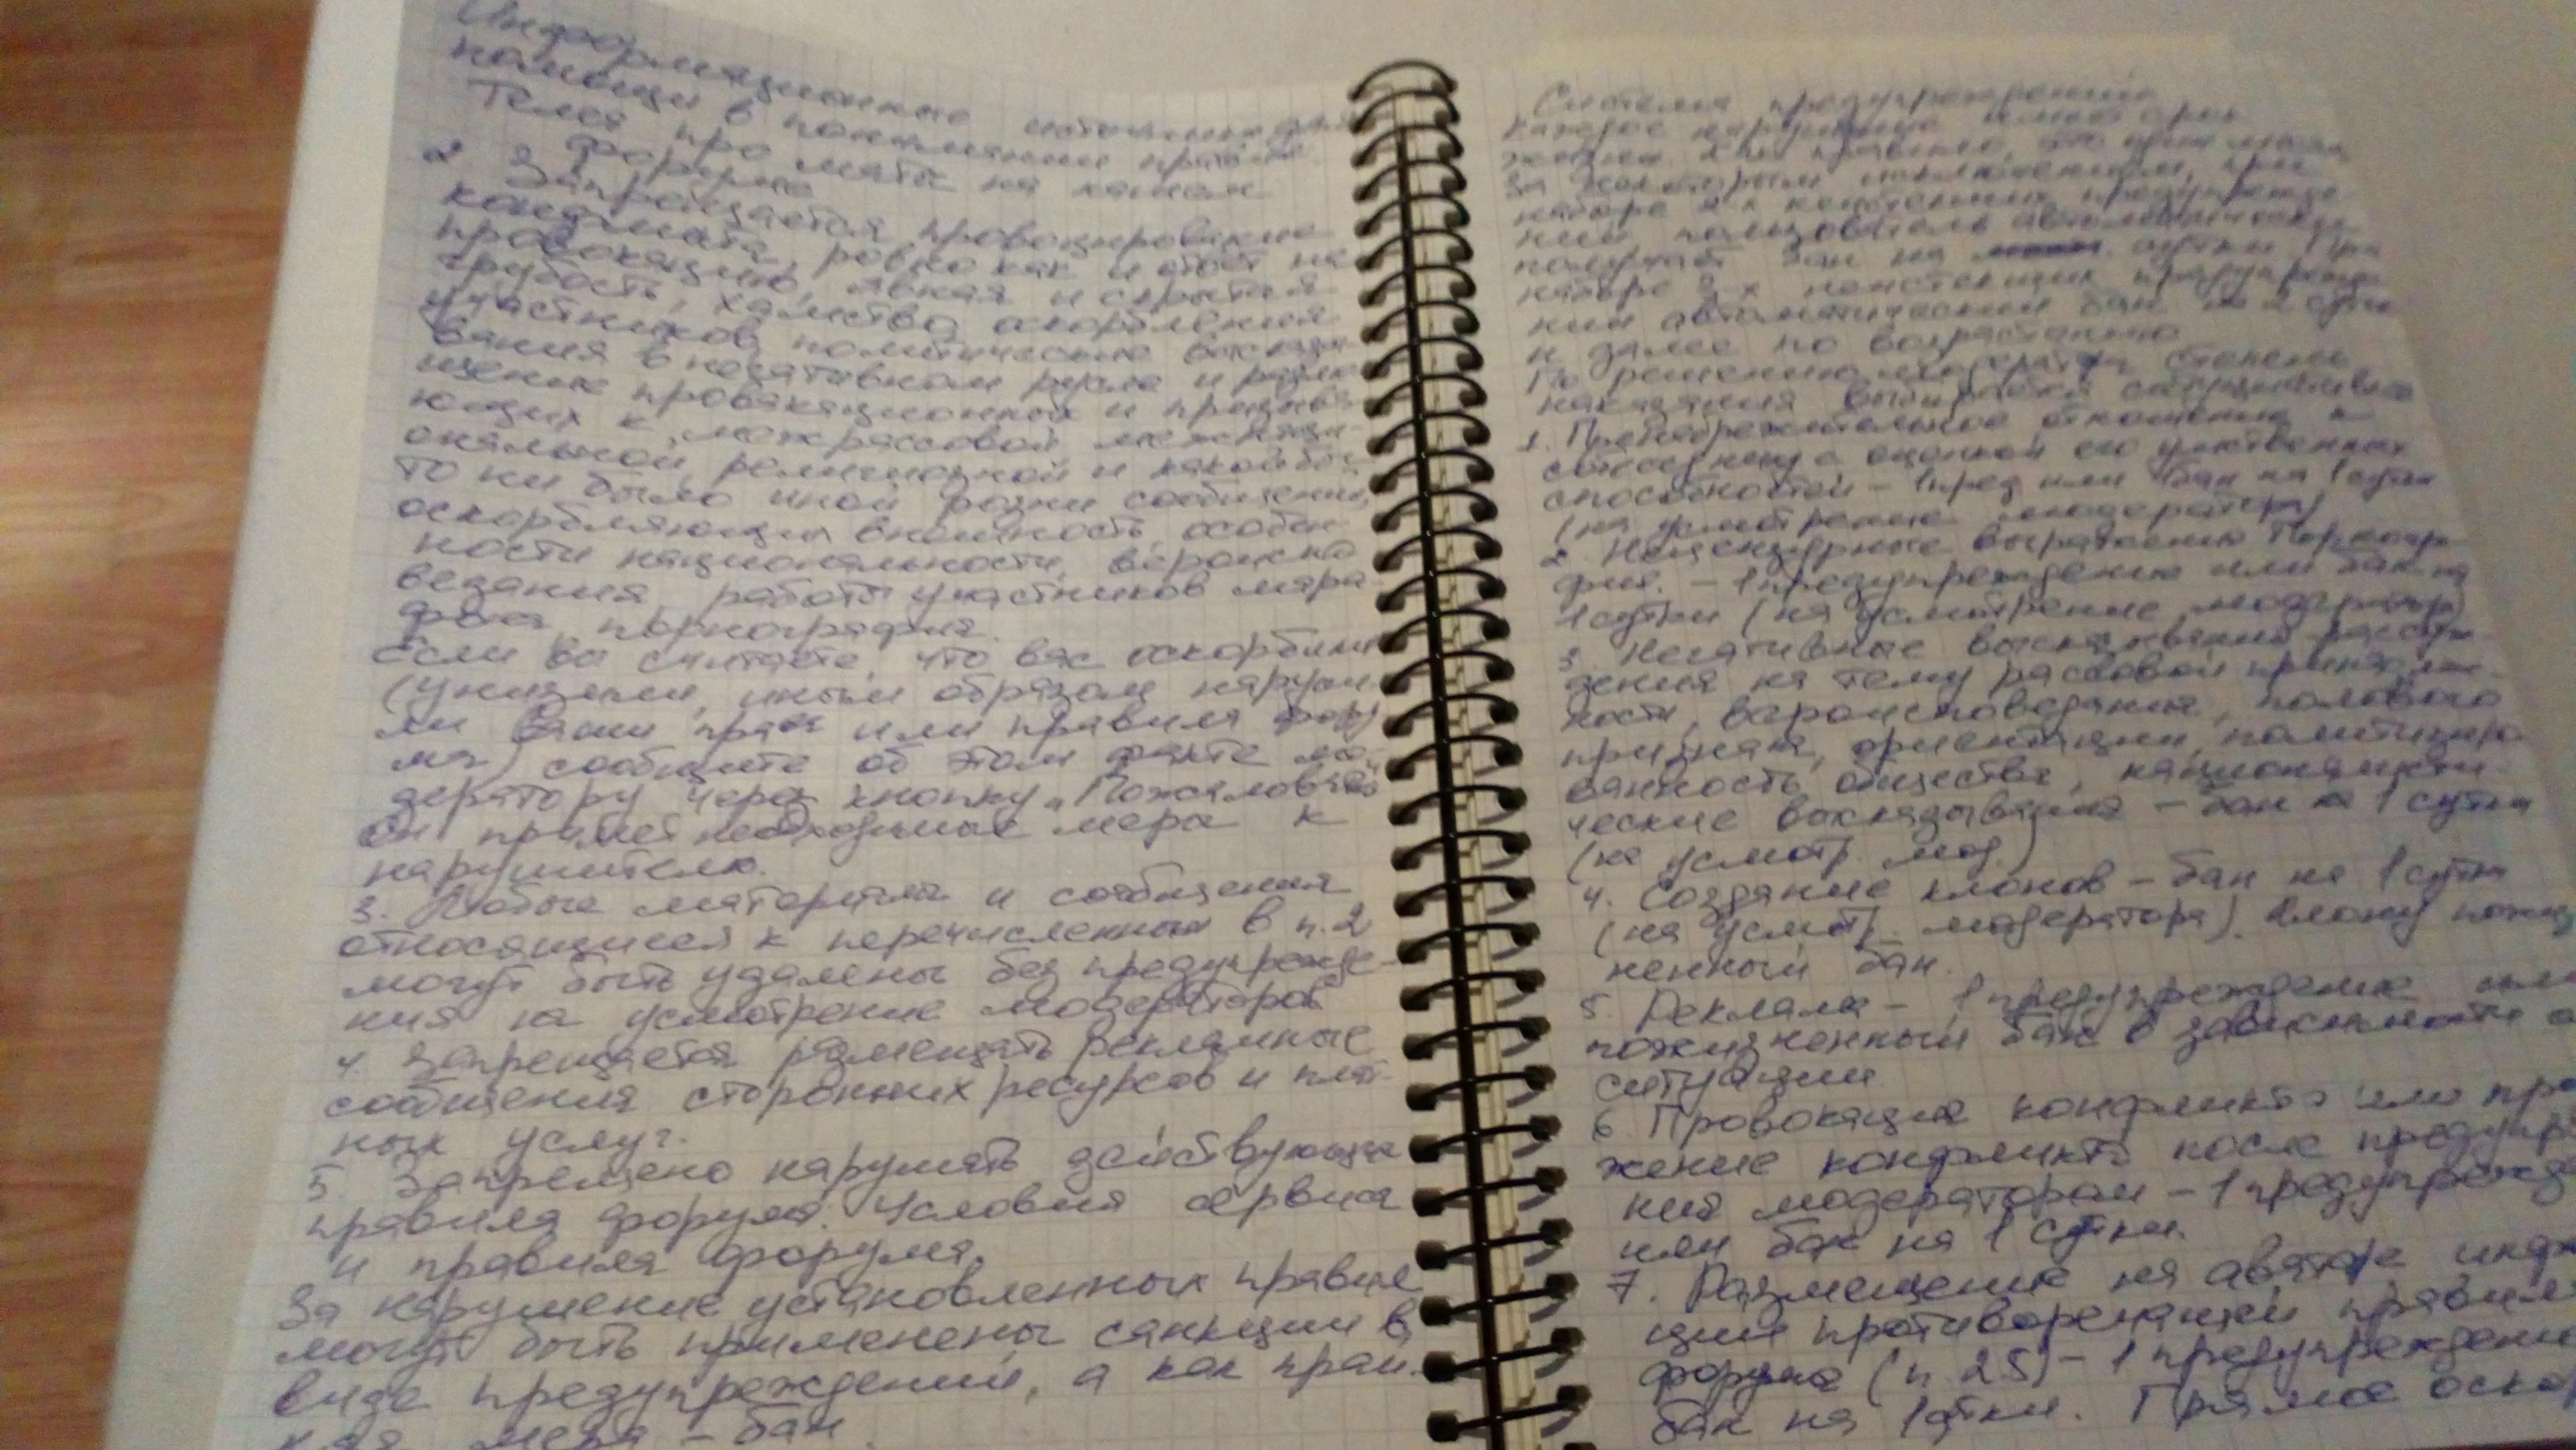 Информационные источники для
помощи в понимании правил
Тема про маты на нашем
форуме
2 Запрещается провоцирование
конфликта, ровно как и ответ на
провокацию, явная и скрытая
грубость, хамство, оскорбления
участников, политические выска
вания в негативном русле и разме
щение провокационных и призыва
ющих к межрассовой, межнаци-
ональной, религиозной и какой бы
то ни было иной розни сообщений,
оскорбляющих внешность, особен
ности национальности, вероиспо
ведания, работы участников мара
фона, порнография.
Если вы считаете, что вас оскорбили
(унизили, иным образом наруши
ли Ваши права или правила фору
ма) сообщите об этом факте мо
дератору через кнопку „Пожаловаться
Он примет необходимые меры к
нарушителю.
3. Любые материалы и сообщения
относящиеся к перечисленным в п.2
могут быть удалены без предупрежде-
ния на усмотрение модераторов
4 Запрещается размещать рекламные
сообщения сторонних ресурсов и плат-
ных услуг.
5. Запрещено нарушать действующие
правила форума. Условия сервиса
и правила форума.
За нарушение установленных правил
могут быть применены санкции в
виде предупреждений, а как край-
няя мера – бан.
Система предупреждений
Каждое нарушение имеет срок
За некоторым исключением, при
наборе 2-х неистекших предупрежде
ний пользователь автоматически
получает бан на сутки При
наборе 3-х неистекших предупрежде
ний автоматический бан на 2 суток
и далее по возрастанию
По решению модератора степень
наказания
1. Пренебрежительное отношение к
собеседнику с оценкой его умственных
способностей – 1 пред или бан на 1 сутки
(на усмотрение модератора)
2. Нецензурные выражения Порногра
фия. – 1 предупреждение или бан на
1 сутки (на усмотрение модератора)
3. Негативные высказывания рассуж
дения на тему рассовой принадлеж
ности, вероисповедания, полового
признака, ориентации, политизиро
ванность общества, националисти
ческие выскадывания – бан на 1 сутки
(на усмотр. мод.)
4. Создание клонов – бан на 1 сутки
(на усмотр. модератора). Клону пожиз
ненный бан.
5. Реклама – 1 предупреждение или
пожизненный бан в зависимости о
ситуации
6 Провокация конфликта или про
жение конфликта после предупр
ния модератором – 1 предупрежд
или бан на 1 сутки.
7. Размещение на аватаре инфо
ции противоречащей правил
форума (п. 2.5) – 1 предупреждени
бан на 1 сутки. Прямое оско